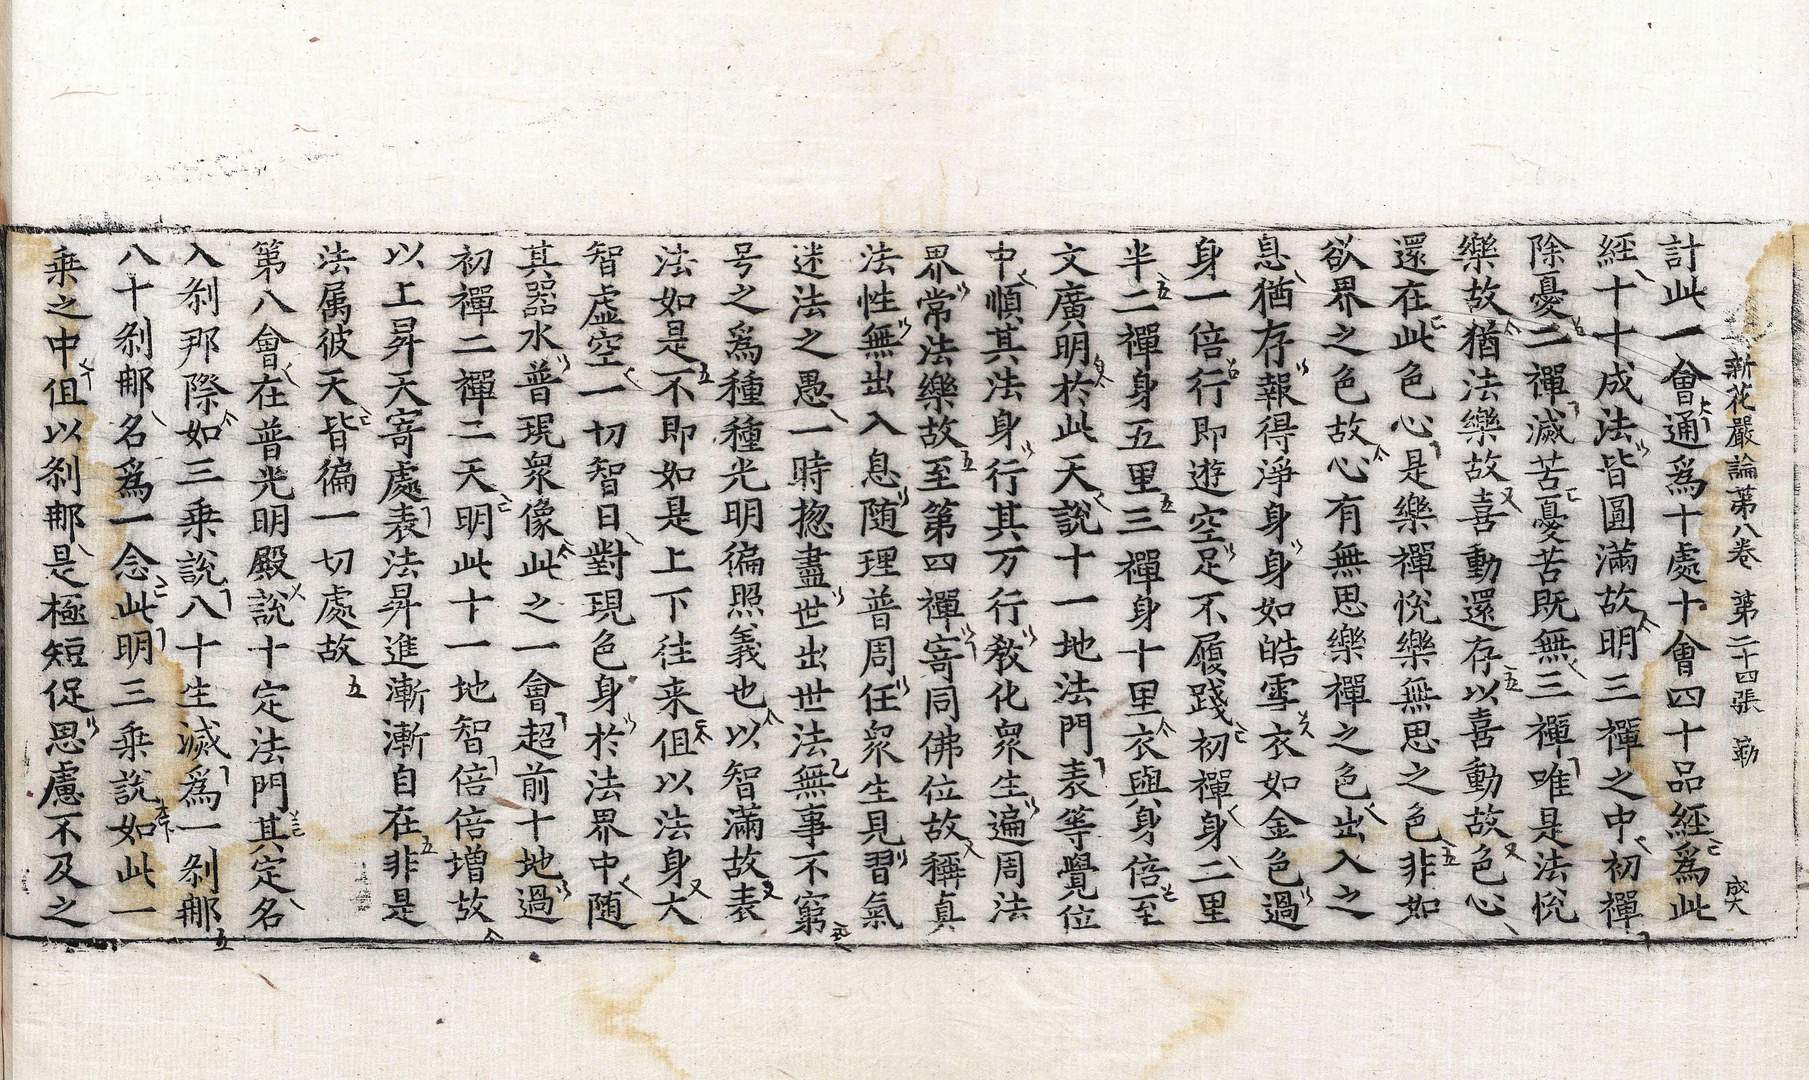 新花嚴論第八卷 第二十四張 勤
計此一會通爲十處十會四十品經爲此
經十十成法皆圓滿故明三禪之中初禪
除憂二禪滅苦憂苦旣無三禪唯是法恱
樂故猶法樂故喜動還存以喜動故色心
還在此色心是樂禪恱樂無思之色非如
欲界之色故心有無思樂禪之色出入之
息猶存報得淨身身如皓雪衣如金色過
身一倍行即遊空足不履踐初禪身二里
半二禪身五里三禪身十里衣與身倍至
文廣明於此天說十一地法門表等覺位
中順其法身行其万行教化衆生遍周法
界常法樂故至第四禪寄同佛位故稱真
法性無出入息随理普周任衆生見習氣
迷法之愚一時揔盡世出世法無事不窮
号之爲種種光明徧照義也以智滿故表
法如是不即如是上下往来伹以法身大
智虛空一切智日對現色身於法界中随
其器水普現衆像此之一會超前十地過
初禪二禪二天明此十一地智倍倍增故
以上昇天寄處表法昇進漸漸自在非是
法属彼天皆徧一切處故
第八會在普光明殿說十定法門其定名
入刹那際如三乗說八十生滅爲一刹那
八十刹那名爲一念此明三乗說如此一
乗之中伹以刹那是極短促思慮不及之